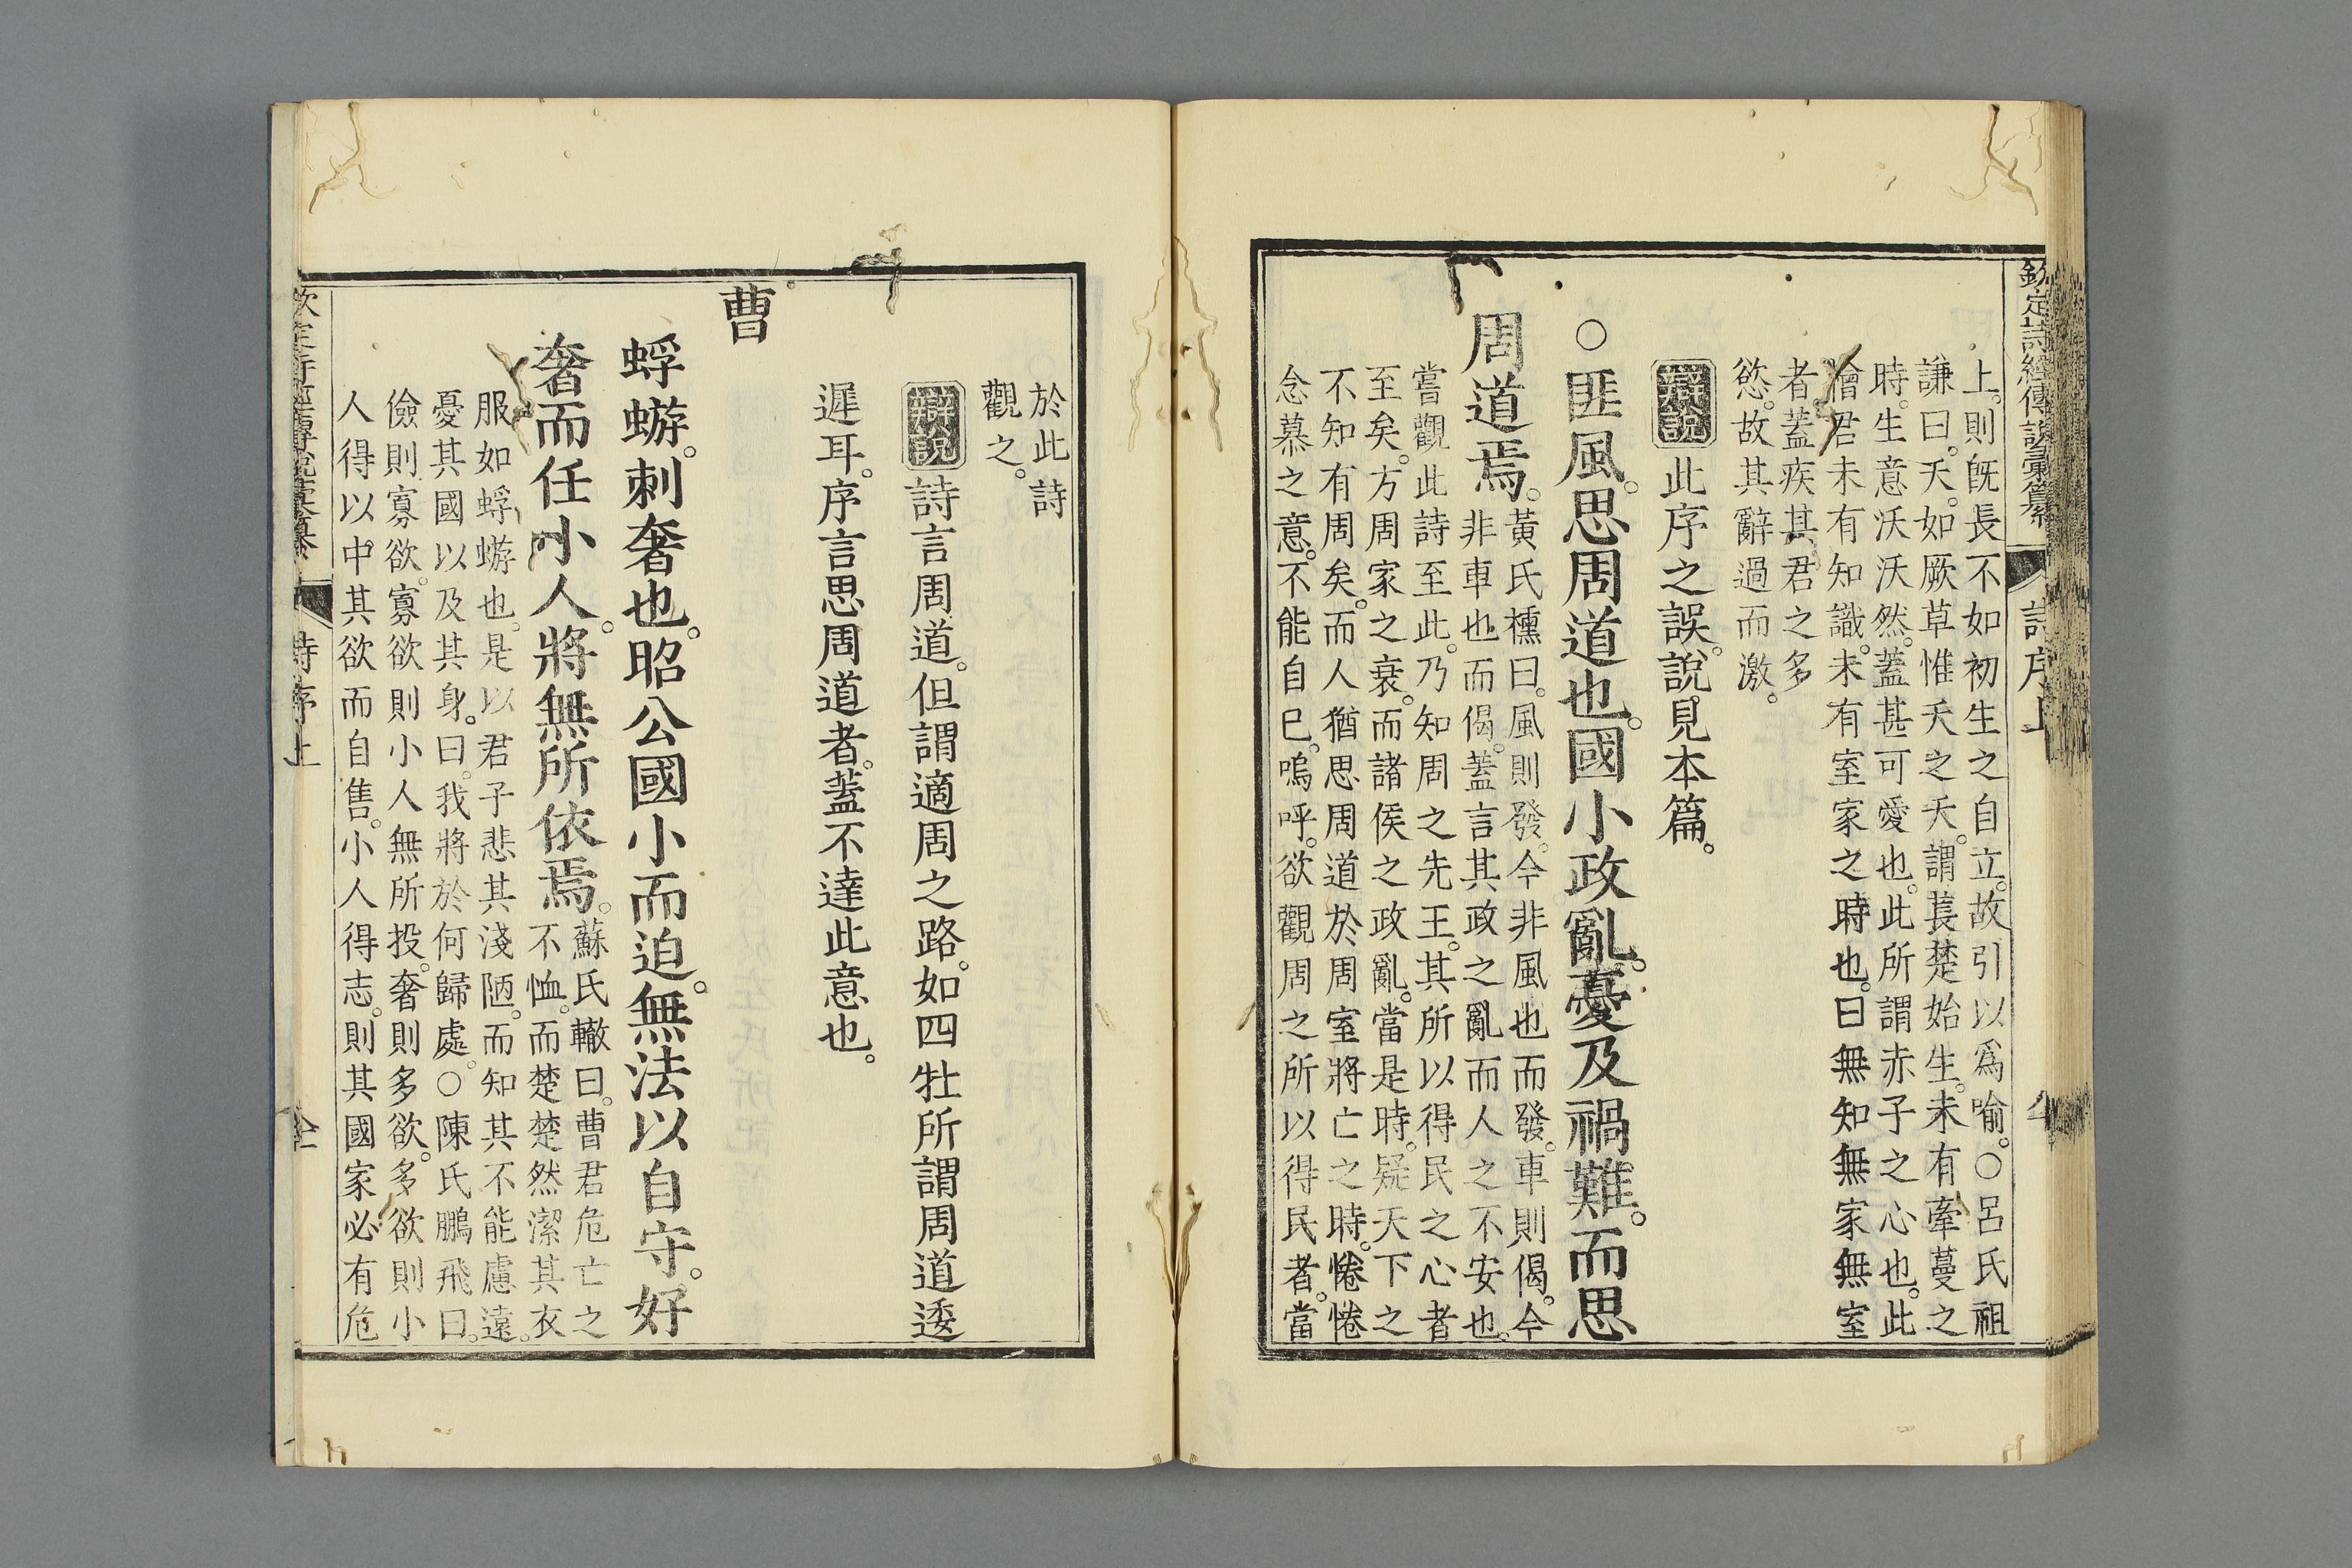 欽定詩經傳說彙纂 詩序上
上。則旣長不如初生之自立。故引以爲喻。○呂氏祖
謙曰。夭。如厥草惟夭之夭。謂萇楚始生。未有牽蔓之
時。生意沃沃然。蓋甚可愛也。此所謂赤子之心也。此
檜君未有知識。未有室家之時也。曰無知無家無室
者。蓋疾其君之多
慾。故其辭過而激。
辯說此序之誤。說見本篇。
○匪風。思周道也。國小政亂。憂及禍難。而思
周道焉。
黃氏櫄曰。風則發。今非風也而發。車則偈。今
非車也而偈。蓋言其政之亂而人之不安也。
嘗觀此詩至此。乃知周之先王。其所以得民之心者
至矣。方周家之衰。而諸侯之政亂。當是時。疑天下之
不知有周矣。而人猶思周道於周室將亡之時。惓惓
念慕之意。不能自已。嗚呼。欲觀周之所以得民者。當
於此詩
觀之。
辯說詩言周道。但謂適周之路。如四牡所謂周道逶
遲耳。序言思周道者。蓋不達此意也。
曹
蜉蝣。刺奢也。昭公國小而迫。無法以自守。好
奢而任小人。將無所依焉。
蘇氏轍曰。曹君危亡之
不恤。而楚楚然潔其衣
服如蜉蝣也。是以君子悲其淺陋。而知其不能慮遠。
憂其國以及其身。曰。我將於何歸處。○陳氏鵬飛曰。
儉則寡欲。寡欲則小人無所投。奢則多欲。多欲則小
人得以中其欲而自售。小人得志。則其國家必有危
欽定詩經傳說彙纂 詩序上